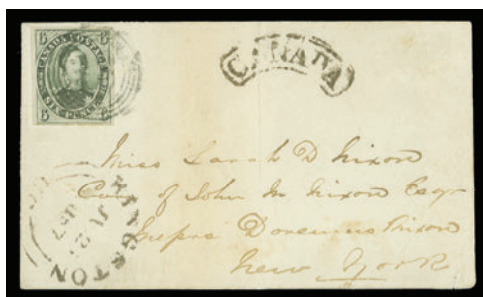 6 CANADA POSTAGE 6
SIX PENCE
6 6
CANADA
Miss Sarah D Nixon
Care of John M Nixon Esqr
Doremus Nixon
New York
KINGSTON
JU 2
1857